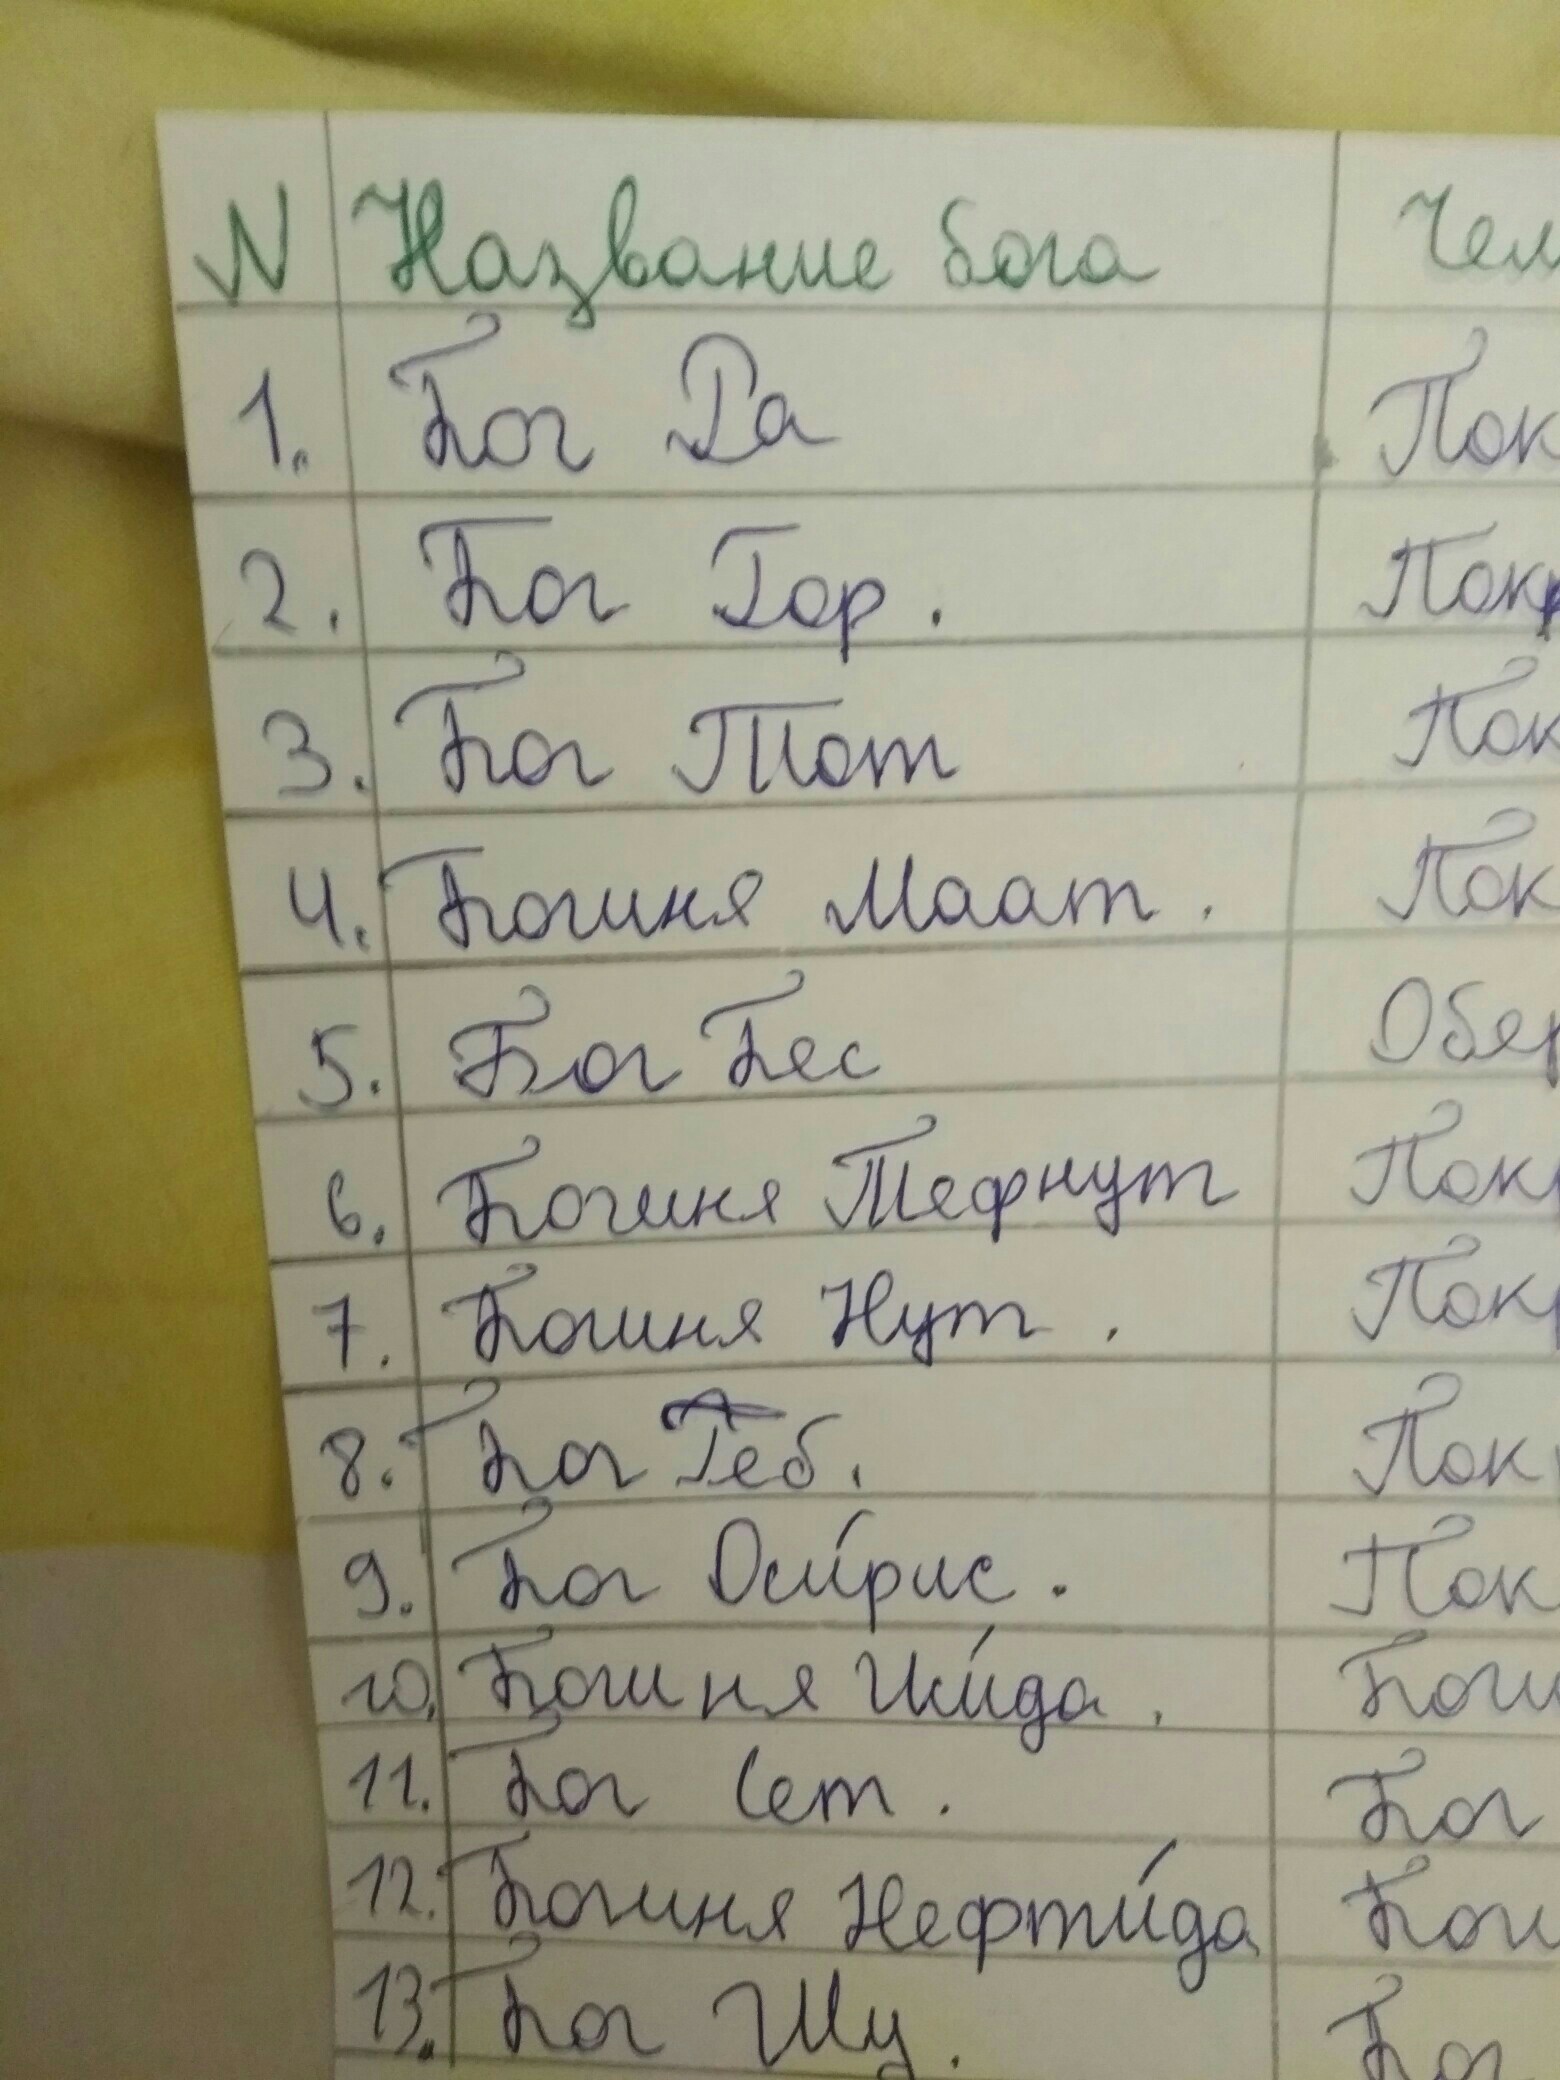 N Название бога Чем
1. Бог Ра Пок
2. Бог Гор. Покр
3. Бог Тот Пок
4. Богиня Маат. Пок
5. Бог Бес Обер
6. Богиня Тефнут Покр
7. Богиня Нут. Покр
8. Бог Геб. Покр
9. Бог Оси́рис. Пок
10. Богиня Иси́да. Боги
11. Бог Сет. Бог
12. Богиня Нефти́да Боги
13. Бог Шу. Бог